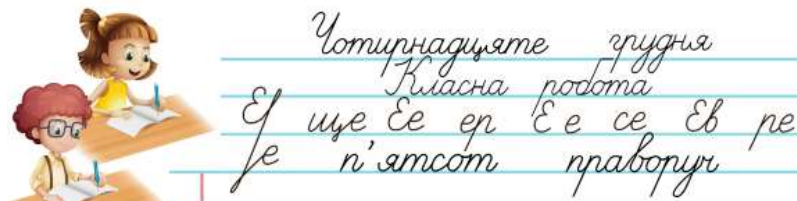 Чотирнадцяте грудня
Класна робота
Еу ще Ее ер Е е се Ев ре
je п'ятсот праворуч